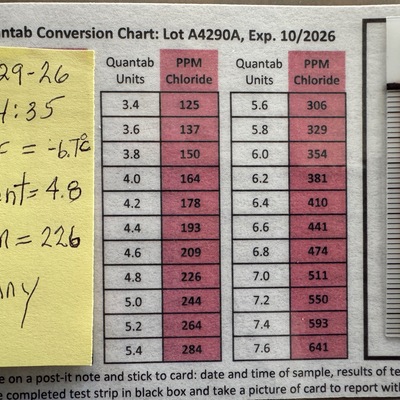 ntab Conversion Chart: Lot A4290A, Exp. 10/2026
29-26
:35
= -6.7°c
ent= 4.8
n = 226
ny
Quantab Units PPM Chloride Quantab Units PPM Chloride
3.4 125 5.6 306
3.6 137 5.8 329
3.8 150 6.0 354
4.0 164 6.2 381
4.2 178 6.4 410
4.4 193 6.6 441
4.6 209 6.8 474
4.8 226 7.0 511
5.0 244 7.2 550
5.2 264 7.4 593
5.4 284 7.6 641
e on a post-it note and stick to card: date and time of sample, results of te
e completed test strip in black box and take a picture of card to report with